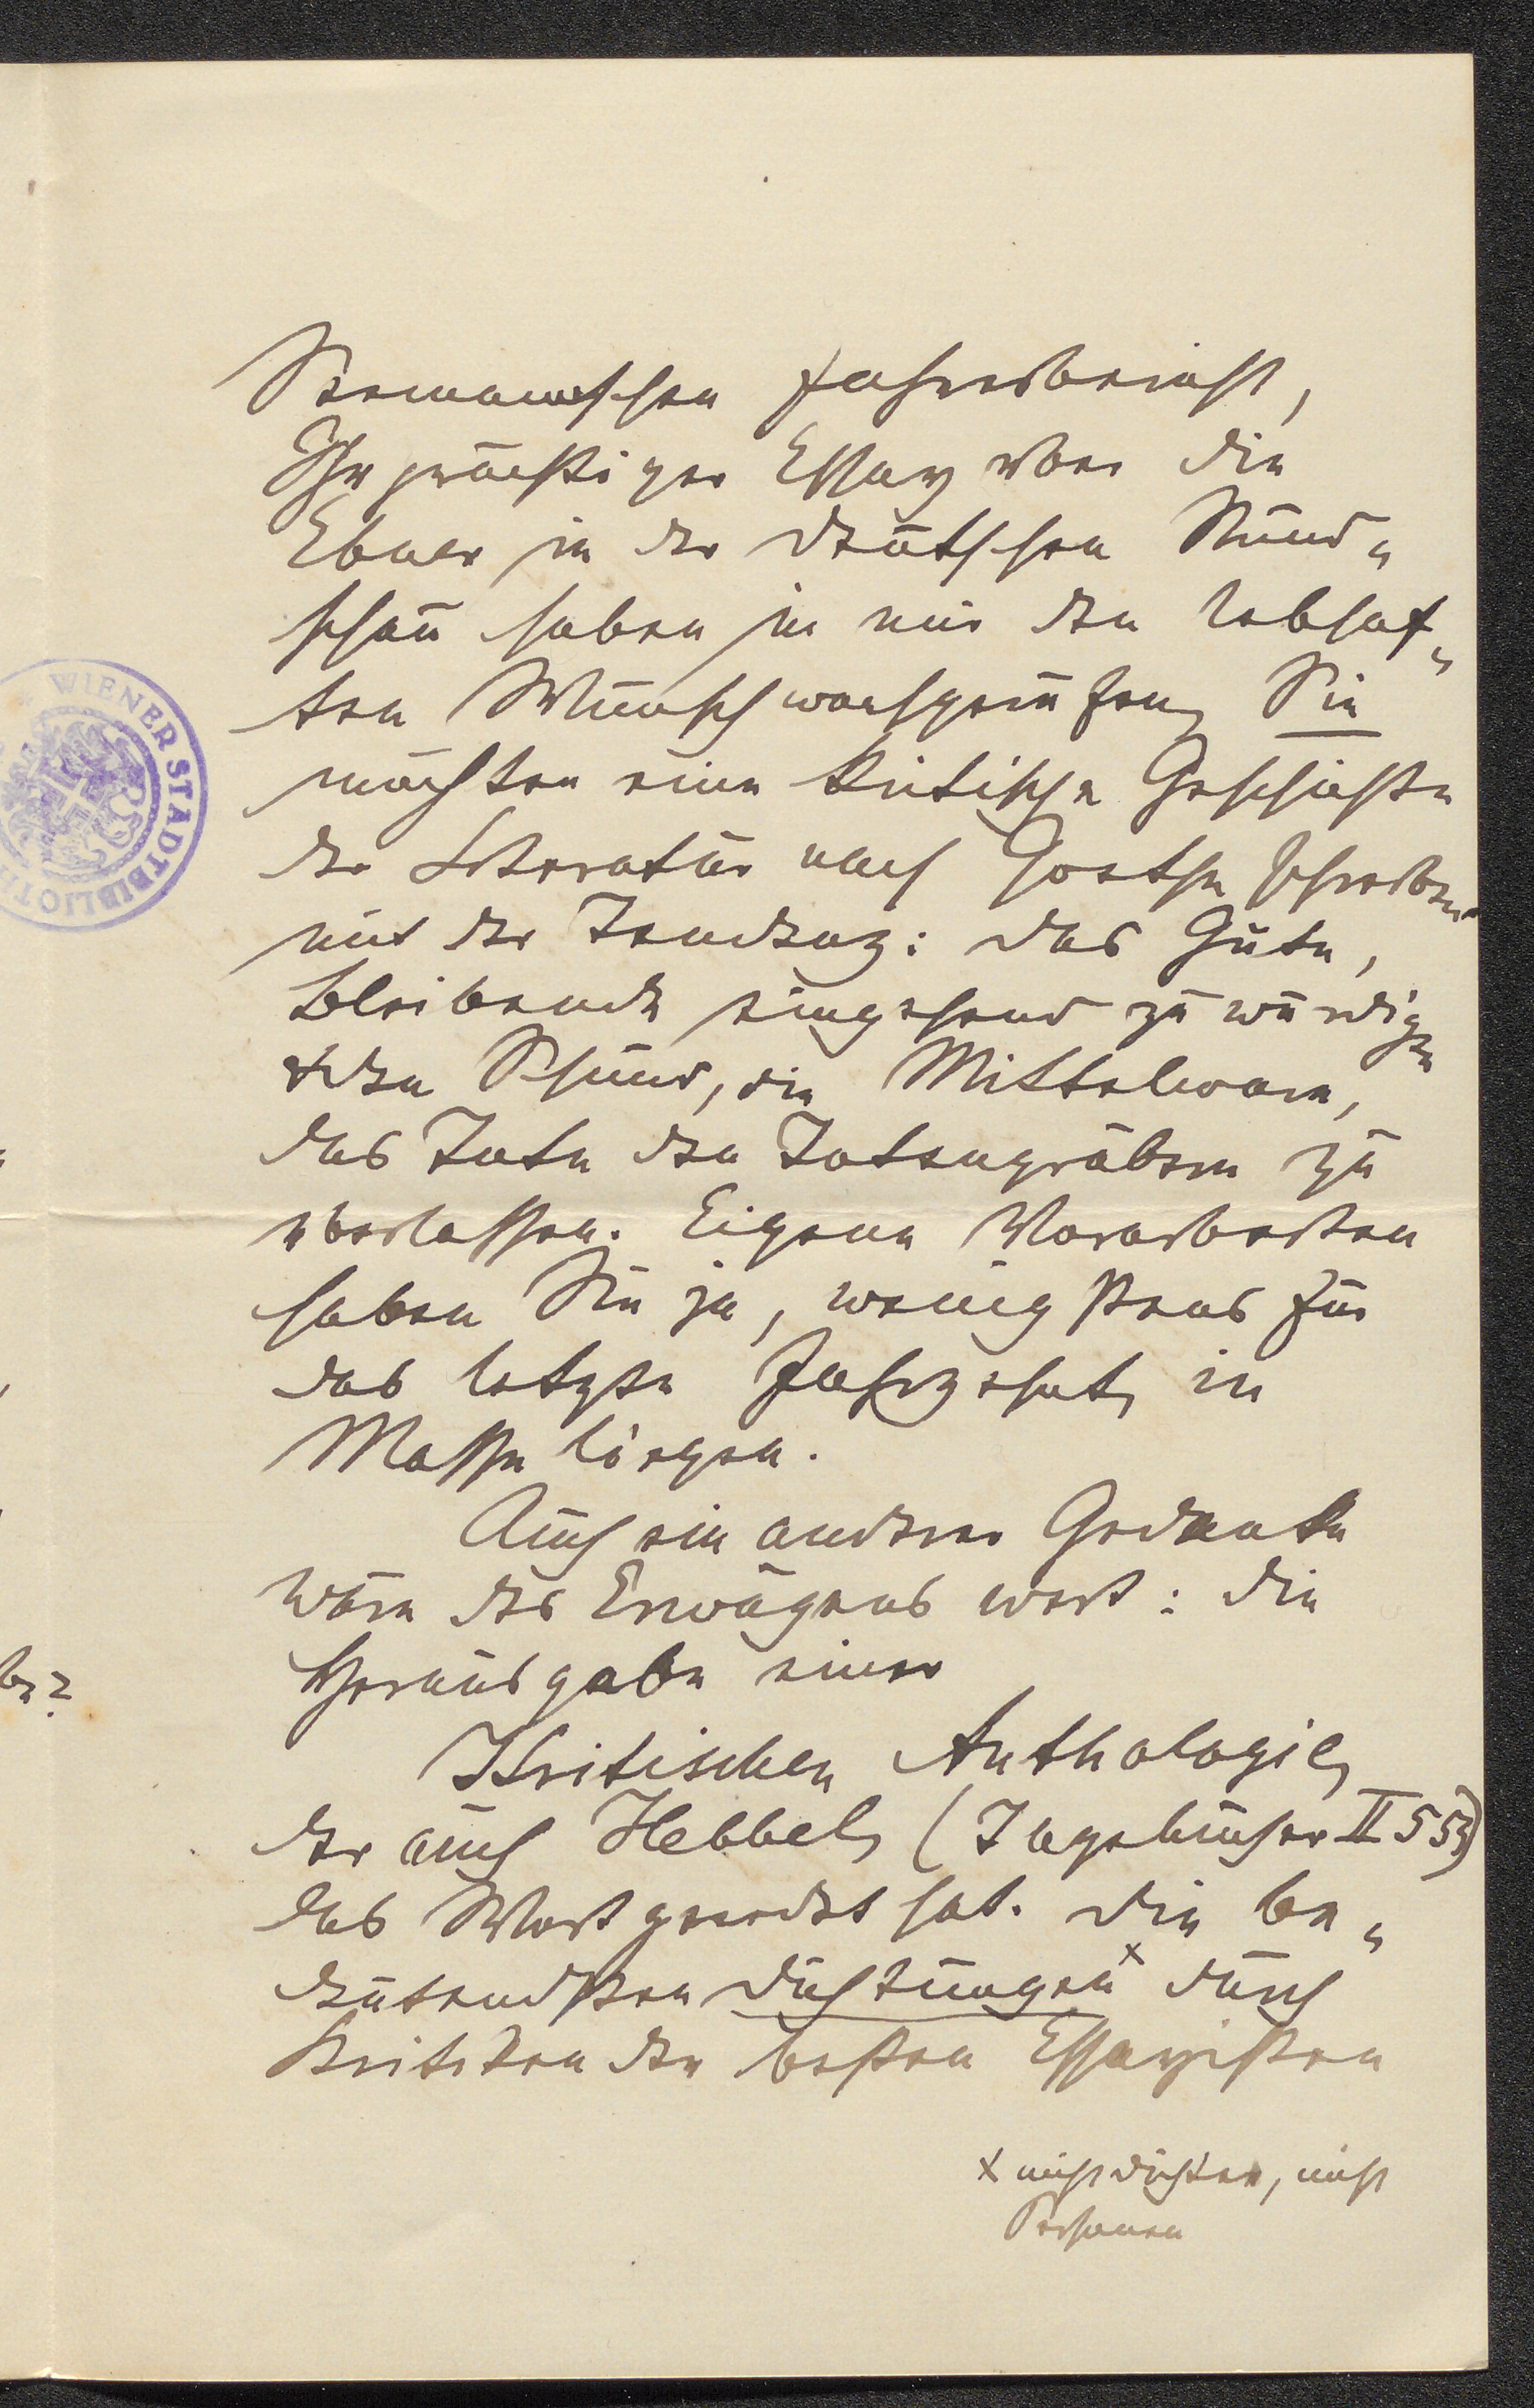 Seemann'schen Jahresbericht,
Ihr prächtiger Essay über die
Ebner in der deutschen Rund„
schau haben in mir den lebhaf„
ten Wunsch wachgerufen, Sie
möchten eine kritische Geschichte
der Literatur nach Goethe schreiben
mit der Tendenz: das Gute,
Bleibende eingehend zu würdigen
& den Schund, die Mittelware,
das Tote den Totengräbern zu
überlassen. Eigene Vorarbeiten
haben Sie ja, wenigstens für
das letzte Jahrzehnt, in
Masse liegen.
Auch ein anderer Gedanke
wäre des Erwägens wert: die
Herausgabe einer
Kritischen Anthologie,
der auch Hebbel, (Tagebücher II 553)
das Wort geredet hat. Die be„
deutendsten Dichtungen x durch
Kritiken der besten Essayisten
x nicht Dichter, nicht
Personen
WIENER STADTBIBLIOTH
be?